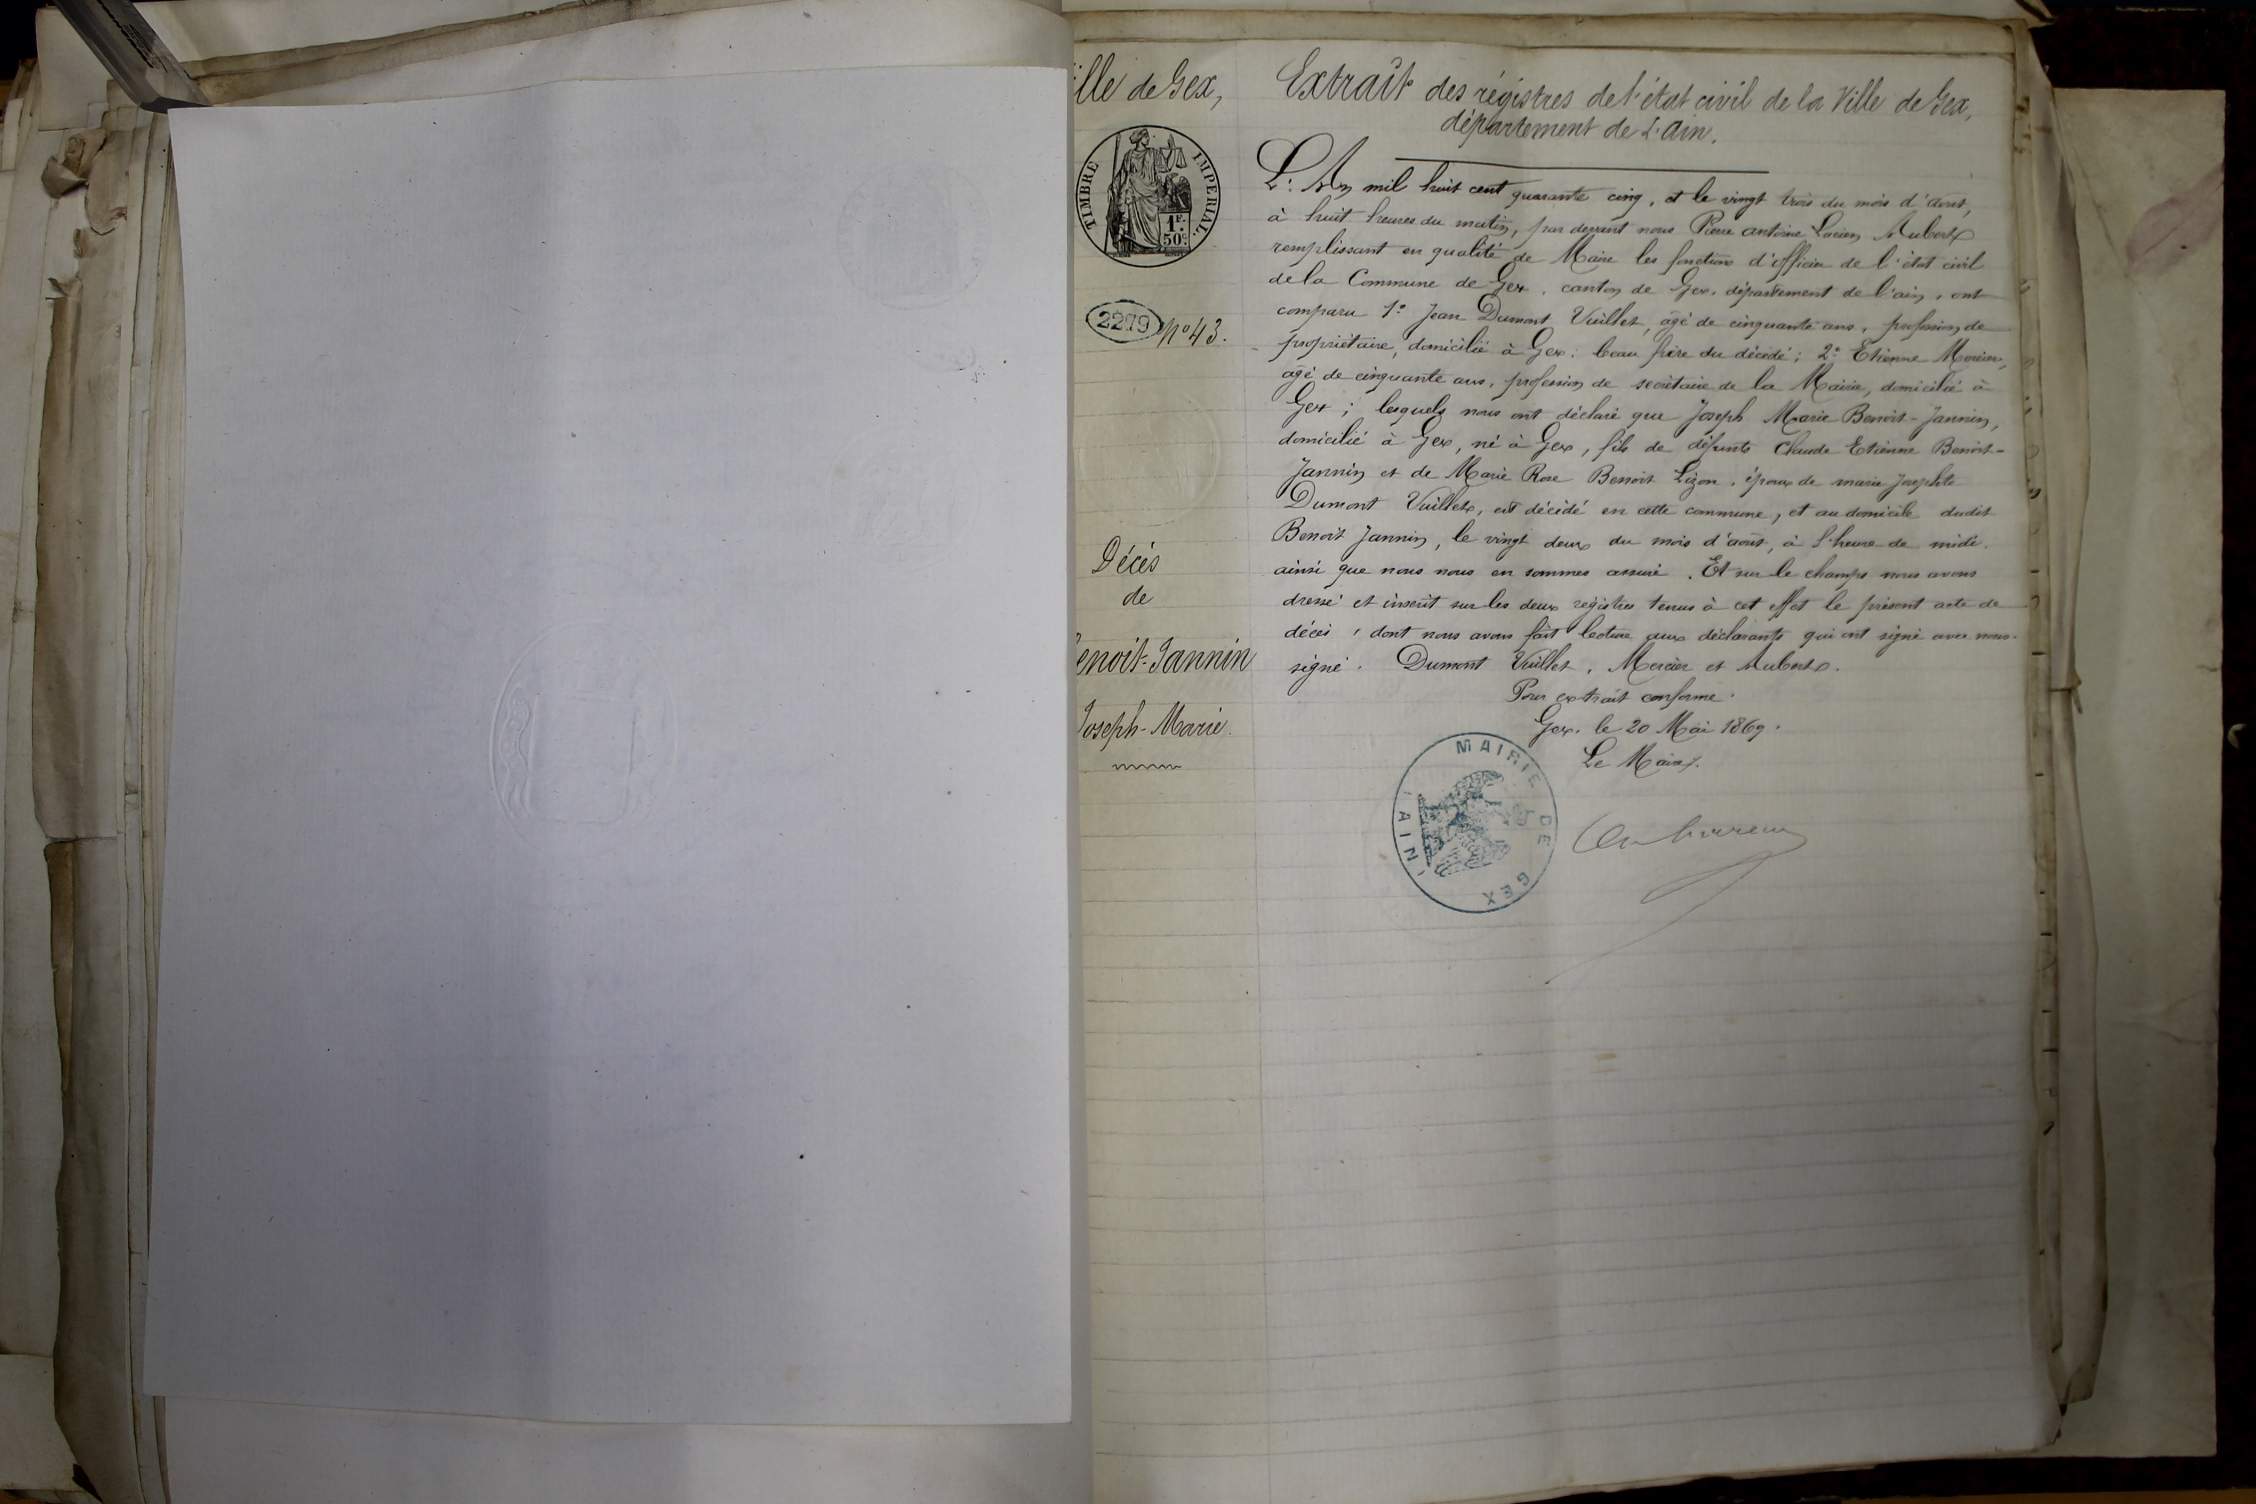 ille de Gex,
TIMBRE IMPERIAL.
1F.
50c
2279 No 43.
Décès
de
enoit-Jannin
Joseph-Marie.
Extrait des régistres de l'état civil de la Ville de Gex,
département de L'ain.
L'An mil huit cent quarante cinq, et le vingt trois du mois d'aout,
à huit heures du matin, par devant nous Pierre antoine Lucien Aubert
remplissant en qualité de Maire les fonctions d'officier de l'état civil
de la Commune de Gex, canton de Gex, département de l'ain, ont
comparu 1° Jean Dumont Vuillet, âgé de cinquante ans, profession de
propriétaire, domicilié à Gex; beau frère du décédé; 2° Etienne Mercier,
âgé de cinquante ans, profession de secrétaire de la Mairie, domicilié à
Gex; lesquels nous ont déclaré que Joseph Marie Benoit-Jannin,
domicilié à Gex, né à Gex, fils de défunts Claude Etienne Benoit-
Jannin et de Marie Rose Benoit Lizon, époux de marie Josephte
Dumont Vuillet, est décédé en cette commune, et au domicile dudit
Benoit Jannin, le vingt deux du mois d'août, à l'heure de midi.
ainsi que nous nous en sommes assuré. Et sur le champs nous avons
dressé et inscrit sur les deux régistres tenus à cet effet le présent acte de
décès, dont nous avons fait lecture aux déclarants qui ont signé avec nous.
signé. Dumont Vuillet, Mercier et Aubert.
Pour extrait conforme.
Gex, le 20 Mai 1869.
Le Maire.
MAIRIE DE GEX
AIN